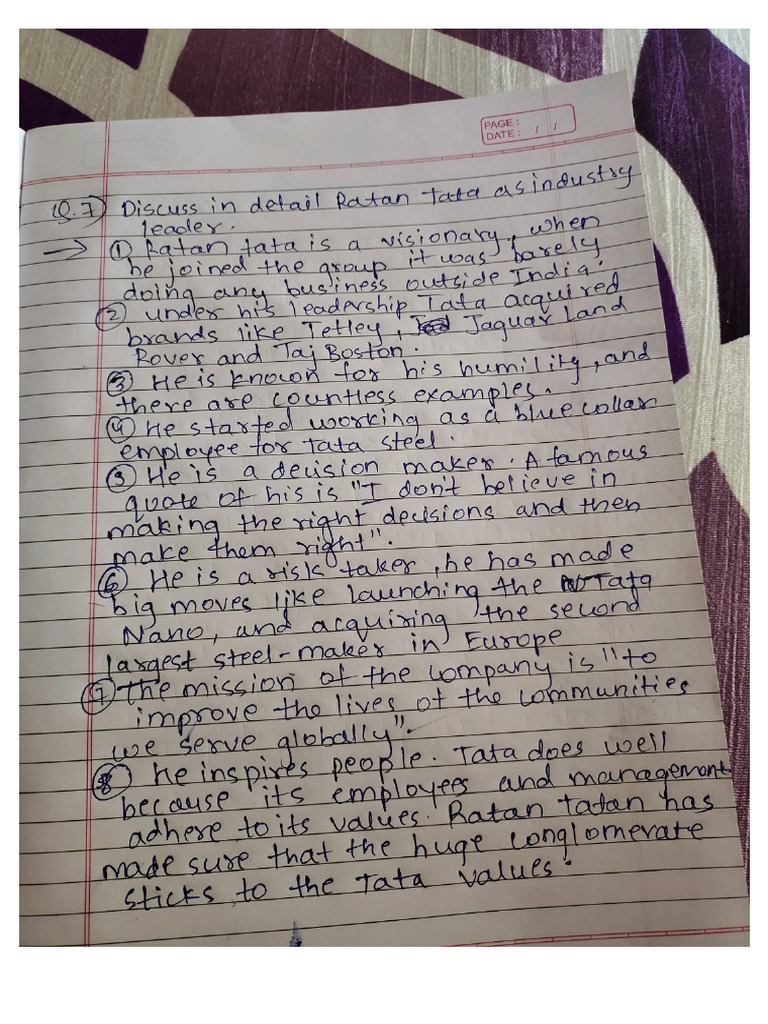 PAGE:
DATE: / /
Q.7) Discuss in detail Ratan Tata as industry
leader.
→ ① Ratan tata is a visionary, when
he joined the group it was barely
doing any business outside India.
② under his leadership Tata acquired
brands like Tetley, Jaguar land
Rover and Taj Boston.
③ He is known for his humility, and
there are countless examples.
④ He started working as a blue collar
employee for Tata steel.
⑤ He is a decision maker. A famous
quote of his is "I don't believe in
making the right decisions and then
make them right".
⑥ He is a risk taker, he has made
big moves like launching the Tata
Nano, and acquiring the second
largest steel-maker in Europe
⑦ the mission of the company is "to
improve the lives of the communities
we serve globally".
⑧ he inspires people. Tata does well
because its employees and management
adhere to its values. Ratan tatan has
made sure that the huge conglomerate
sticks to the Tata values.